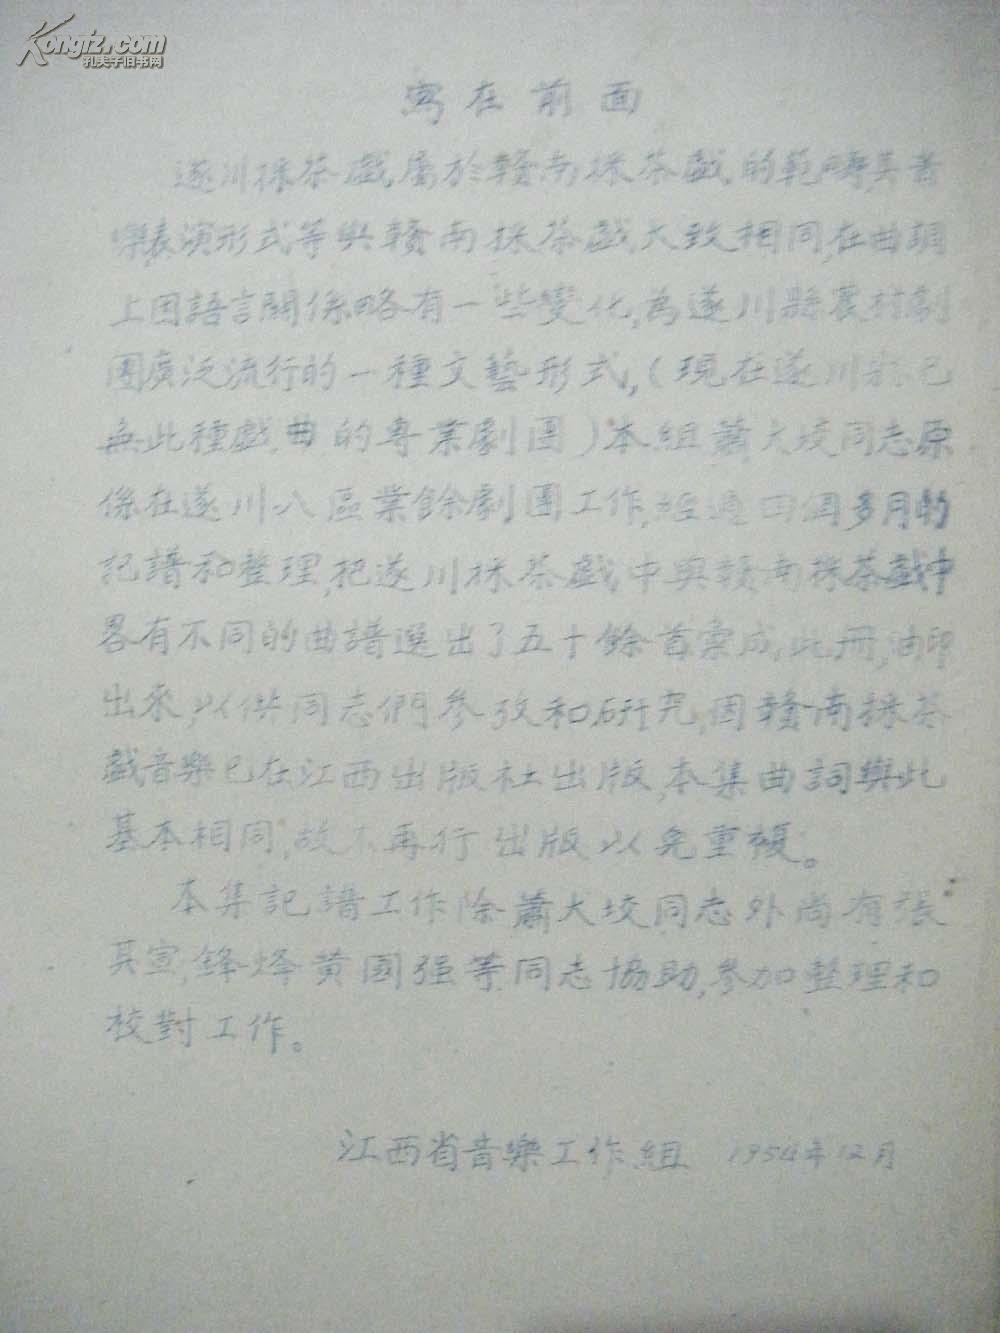 Kongfz.com
孔夫子旧书网
寫在前面
遂川採茶戲屬於贛南採茶戲的範疇其音
樂表演形式等與贛南採茶戲大致相同,在曲調
上因語言關係略有一些變化,為遂川縣農村劇
團廣泛流行的一種文藝形式,(現在遂川縣已
無此種戲曲的專業劇團)本組蕭大坟同志原
係在遂川八區業餘劇團工作,經過四個多月的
記譜和整理,把遂川採茶戲中與贛南採茶戲中
畧有不同的曲譜選出了五十餘首彙成此冊,油印
出來,以供同志們參攷和研究,因贛南採茶
戲音樂已在江西出版社出版,本集曲詞與此
基本相同,故不再行出版以免重複。
本集記譜工作除蕭大坟同志外尚有張
其宣,鋒烽黄國强等同志協助,參加整理和
校對工作。
江西省音樂工作組 1954年12月